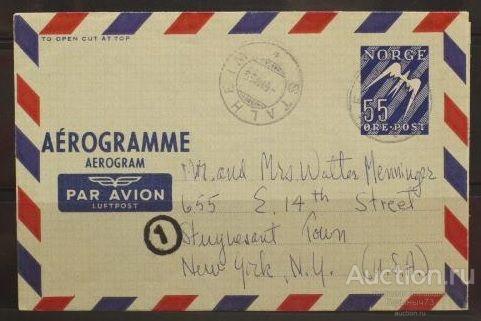 TO OPEN CUT AT TOP
NORGE
55
ØRE·POST
STALHEIM
AÉROGRAMME
AEROGRAM
PAR AVION
LUFTPOST
Mr. and Mrs. Walter Menninger
655 E. 14th Street
1
Stuyvesant Town
New York, N.Y. (USA)
Auction.ru